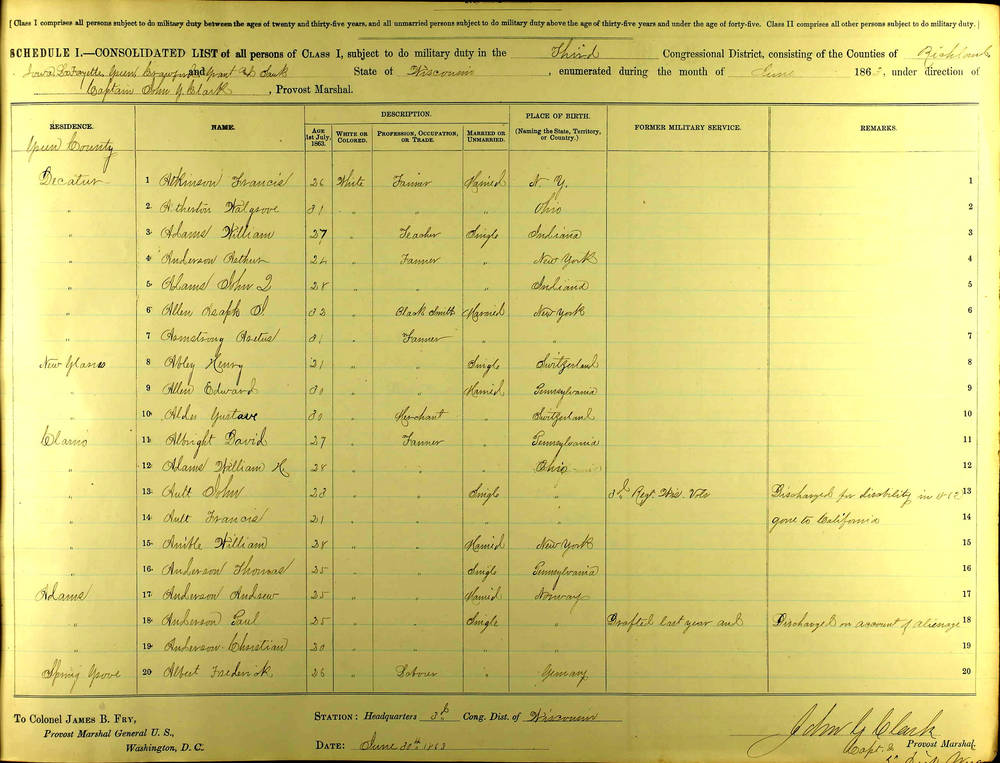 [ Class I comprises all persons subject to do military duty between the ages of twenty and thirty-five years, and all unmarried persons subject to do military duty above the age of thirty-five years and under the age of forty-five. Class II comprises all other persons subject to do military duty. ]
SCHEDULE I.—CONSOLIDATED LIST of all persons of CLASS I, subject to do military duty in the Third Congressional District, consisting of the Counties of Richland
Iowa LaFayette Green Crawford and Grant & Sauk State of Wisconsin, enumerated during the month of June 1863, under direction of
Captain John G. Clark, Provost Marshal.
RESIDENCE. NAME. DESCRIPTION. PLACE OF BIRTH. FORMER MILITARY SERVICE. REMARKS.
AGE 1st July, 1863. WHITE OR COLORED. PROFESSION, OCCUPATION, OR TRADE. MARRIED OR UNMARRIED. (Naming the State, Territory, or Country.)
Green County
Decatur 1 Atkinson Francis 26 White Farmer Married N. Y. 1
" 2 Atherton Walgrove 31 " " " Ohio 2
" 3 Adams William 27 " Teacher Single Indiana 3
" 4 Anderson Arthur 24 " Farmer " New York 4
" 5 Adams John Q 28 " " " Indiana 5
" 6 Allen Asaph O 32 " Black Smith Married New York 6
" 7 Armstrong 31 " Farmer " " 7
New Glarus 8 Abley Henry 21 " " Single Switzerland 8
" 9 Allen Edward 30 " " Married Pennsylvania 9
" 10 Alder Gustave 30 " Merchant " Switzerland 10
Clarno 11 Albright David 27 " Farmer " Pennsylvania 11
" 12 Adams William H. 28 " " " Ohio 12
" 13 Ault John 23 " " Single " 3d Regt. Wis. Vols Discharged for disability in 13
" 14 Ault Francis 21 " " " " gone to California 14
" 15 Anible William 28 " " Married New York 15
" 16 Anderson Thomas 25 " " Single Pennsylvania 16
Adams 17 Anderson Andrew 25 " " Married Norway 17
" 18 Anderson Paul 25 " " Single " Drafted last year and Discharged on account of alienage 18
" 19 Anderson Christian 20 " " " " 19
Spring Grove 20 Albert Frederick 26 " Laborer " Germany 20
To Colonel JAMES B. FRY,
Provost Marshal General U. S.,
Washington, D. C.
STATION: Headquarters 3d Cong. Dist. of Wisconsin
DATE: June 30th 1863
John G Clark
Capt. & Provost Marshal.